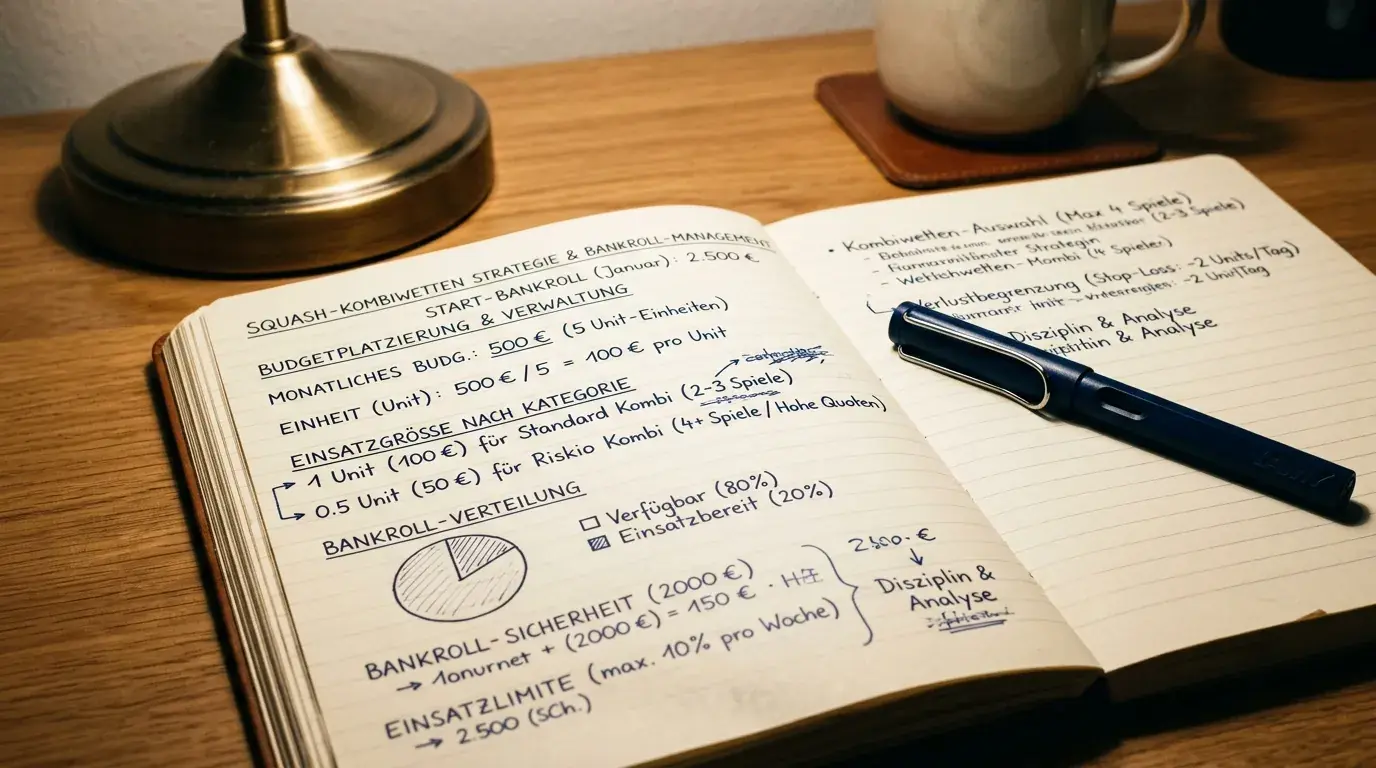 SQUASH-KOMBIWETTEN STRATEGIE & BANKROLL-MANAGEMENT
START-BANKROLL (Januar): 2.500 €
BUDGETPLATZIERUNG & VERWALTUNG
MONATLICHES BUDG.: 500 € (5 Unit-Einheiten)
EINHEIT (Unit): 500 € / 5 = 100 € pro Unit
EINSATZGRÖSSE NACH KATEGORIE
1 Unit (100 €) für Standard Kombi (2-3 Spiele)
0.5 Unit (50 €) für Riskio Kombi (4+ Spiele / Hohe Quoten)
BANKROLL-VERTEILUNG
Verfügbar (80%)
Einsatzbereit (20%)
BANKROLL-SICHERHEIT (2000 €)
→ 1onurnet + (2000 €) = 150 € .
EINSATZLIMITE (max. 10% pro Woche)
→ 2.500 (SCh.)
Disziplin &
Analyse
• Kombiwetten-Auswahl (Max 4 Spiele)
(2-3 Spiele)
- Strategin
- Wettichwetten-Mombi (4 Spieler)
Verlustbegrenzung (Stop-Loss: -2 Units/Tag)
-2 Unit/Tag
Disziplin & Analyse
& Analyse